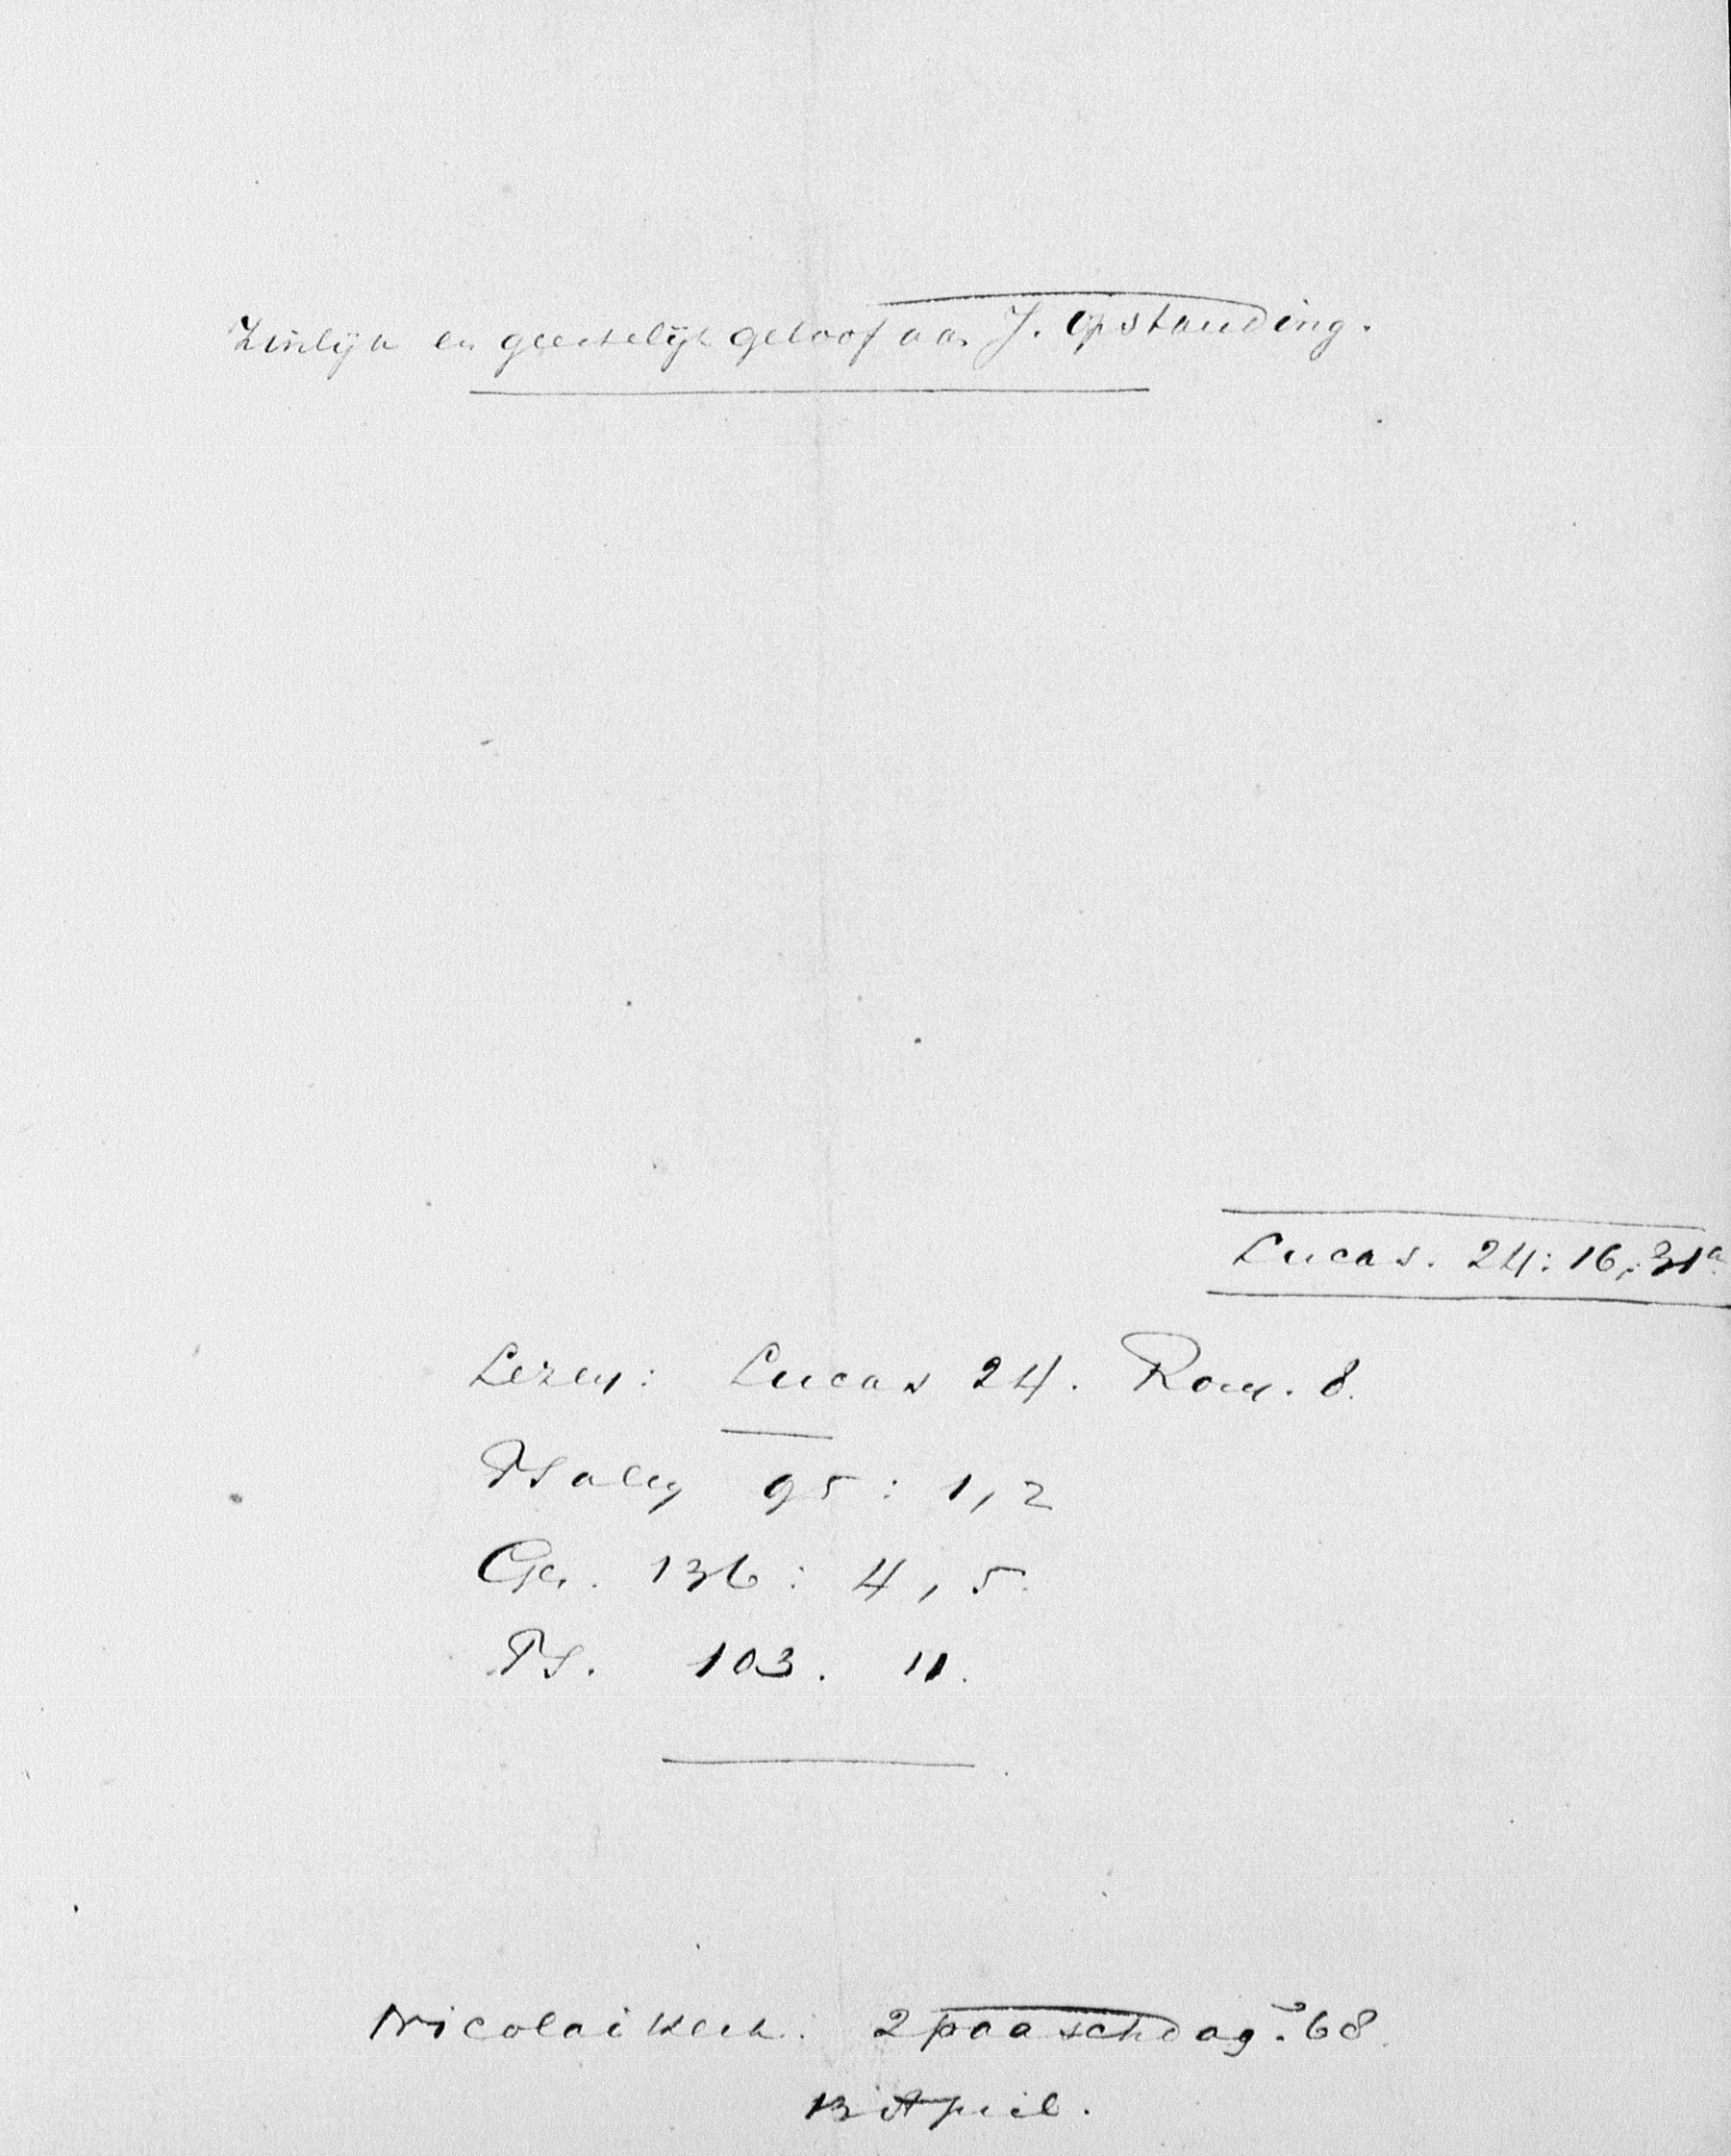 Zinlijk en geestelijk geloof aan J. Opstanding.
Lucas. 24: 16, 31a
Lezen: Lucas 24. Rom. 8.
Psalm 95: 1, 2
Gez. 136: 4, 5.
Ps. 103. 11.
Nicolaikerk. 2 paaschdag. 68.
13 April.